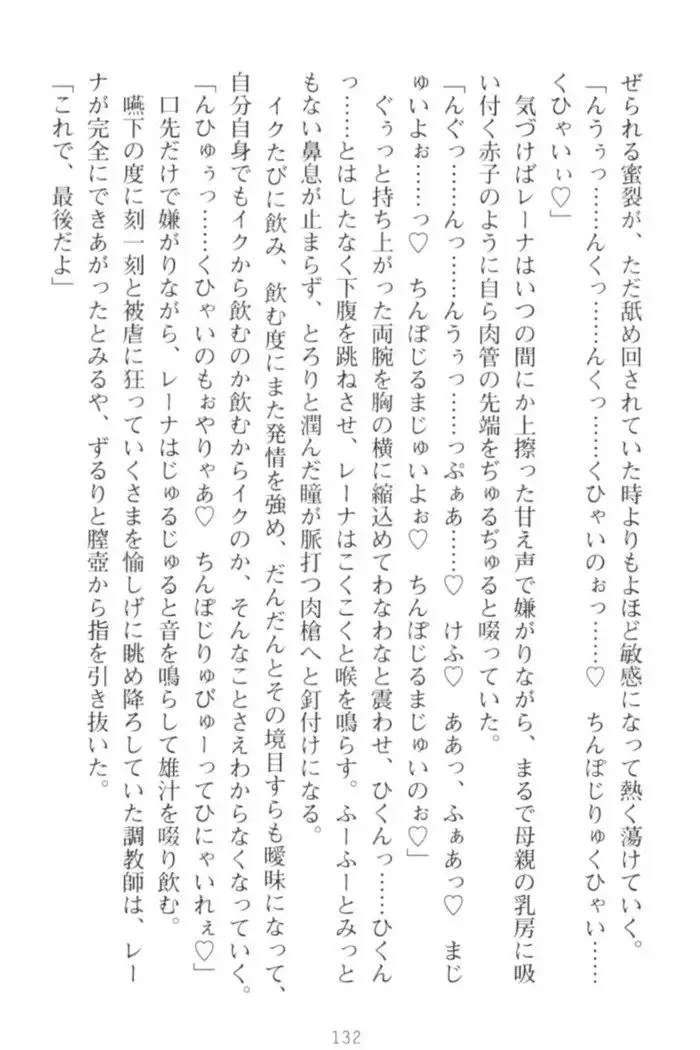 ぜられる蜜裂が、ただ舐め回されていた時よりもよほど敏感になって熱く蕩けていく。
「んうぅっ……んくっ……んくっ……くひゃいのぉっ……♡　ちんぽじりゅくひゃい……
くひゃいぃ♡」
気づけばレーナはいつの間にか上擦った甘え声で嫌がりながら、まるで母親の乳房に吸
い付く赤子のように自ら肉管の先端をぢゅるぢゅると啜っていた。
「んぐっ……んっ……んうぅっ……っぷぁあ……♡　けふ♡　ああっ、ふぁあっ♡　まじ
ゅいよぉ……っ♡　ちんぽじるまじゅいよぉ♡　ちんぽじるまじゅいのぉ♡」
ぐぅっと持ち上がった両腕を胸の横に縮込めてわなわなと震わせ、ひくんっ……ひくん
っ……とはしたなく下腹を跳ねさせ、レーナはこくこくと喉を鳴らす。ふーふーとみっと
もない鼻息が止まらず、とろりと潤んだ瞳が脈打つ肉槍へと釘付けになる。
イクたびに飲み、飲む度にまた発情を強め、だんだんとその境目すらも曖昧になって、
自分自身でもイクから飲むのか飲むからイクのか、そんなことさえわからなくなっていく。
「んひゅぅっ……くひゃいのもぉやりゃあ♡　ちんぽじりゅびゅーってひにゃいれぇ♡」
口先だけで嫌がりながら、レーナはじゅるじゅると音を鳴らして雄汁を啜り飲む。
嚥下の度に刻一刻と被虐に狂っていくさまを愉しげに眺め降ろしていた調教師は、レー
ナが完全にできあがったとみるや、ずるりと膣壺から指を引き抜いた。
「これで、最後だよ」
132